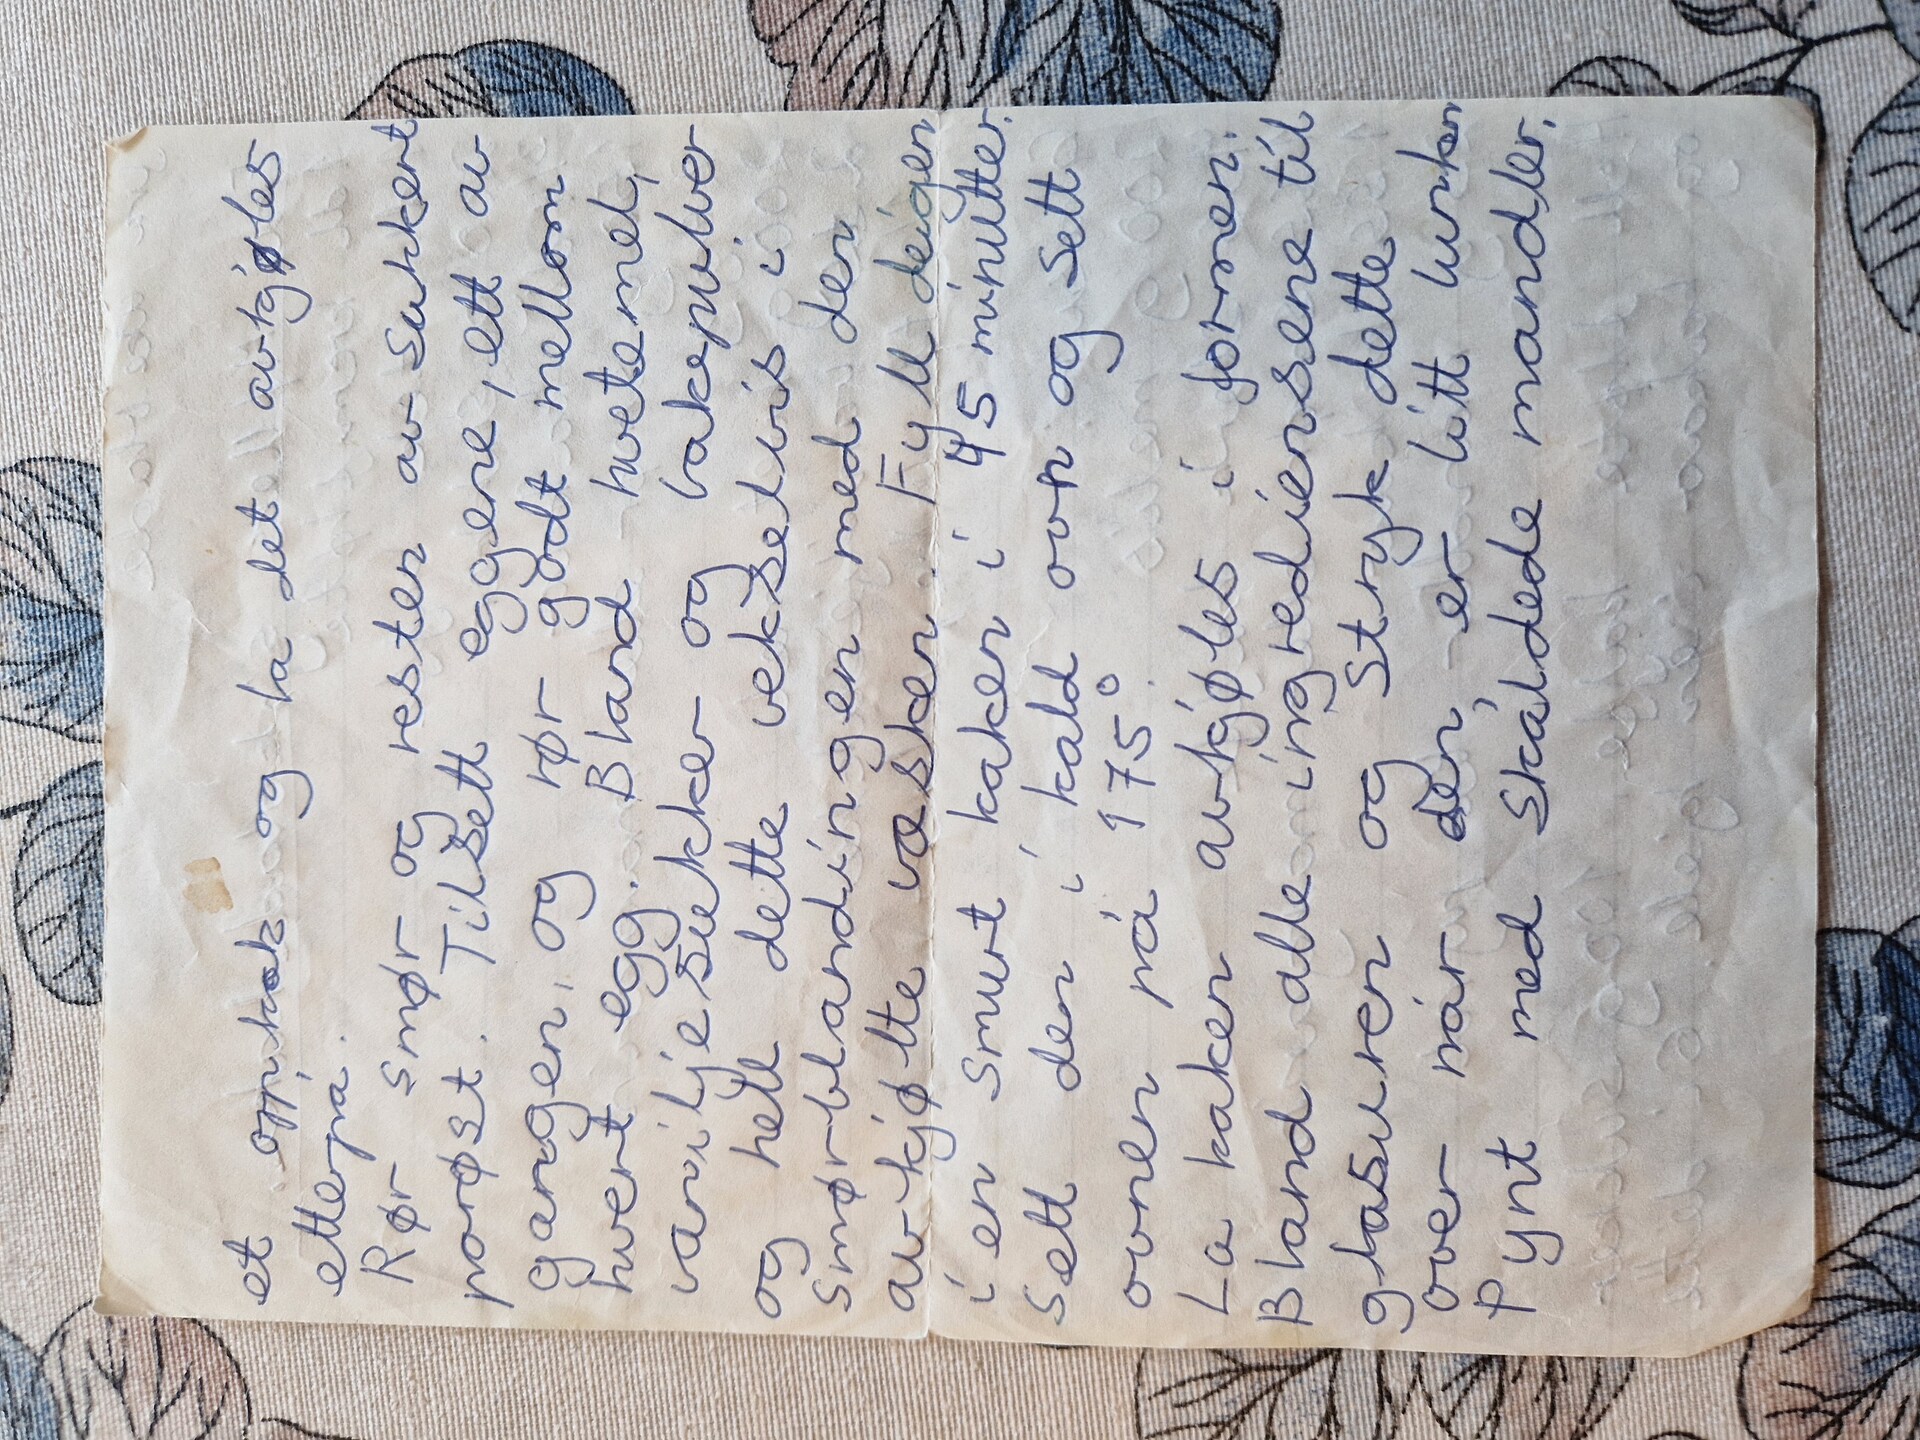 et oppkok og la det avkjøles
etterpå.
Rør smør og resten av sukkert
porøst. Tilsett eggene, ett av
gangen, og rør godt mellom
hvert egg. Bland hvetemel,
vaniljesukker og bakepulver
og hell dette vekselvis i
smørblandingen med den
avkjølte væsken. Fyll deigen
i en smurt kaken i 45 minutter.
Sett den i kald ovn og sett
ovnen på 175°.
La kaken avkjøles i formen.
Bland alle ingrediensene til
glasuren og stryk dette
over når den er litt lunken
Pynt med skåldede mandler.